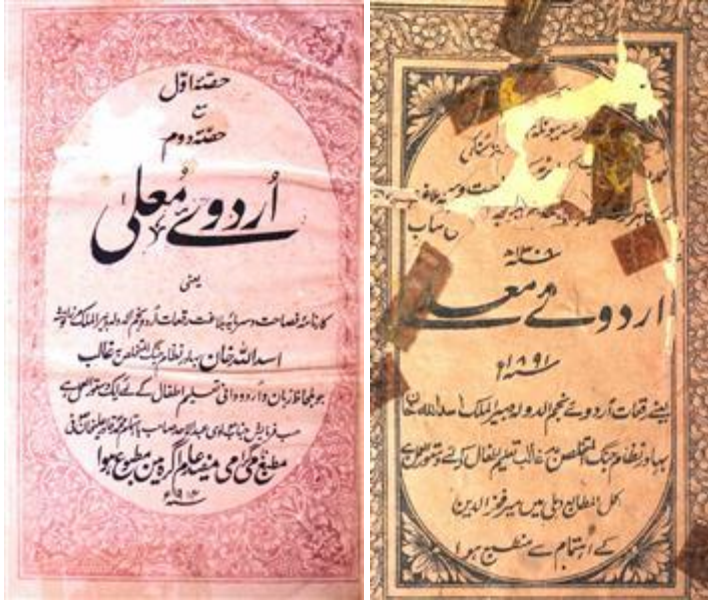 حصّہ اوّل
مع
حصّہ دوم
اُردوئے مُعلّیٰ
یعنی
کارنامہ فصاحت و سرمایہ بلاغت رقعات اُردو نجم الدولہ دبیر الملک مرزا نوشہ
اسد اللہ خان بہادر نظام جنگ المتخلص بہ غالب
جو بلحاظ زبان و اُردو دانی تعلیم اطفال کے لئے ایک دستور العمل ہے
حسب فرمایش جناب مولوی عبد الاحد صاحب باہتمام محمد قادر علیخان صوفی
مطبع گرامی مفید عام آگرہ مین مطبوع ہوا
سنہ ۱۹۱۴ء
صاب
سنہ ۱۳۰۸ھ
اردوئے معلی
سنہ ۱۸۹۱ء
یعنے رقعات اُردوے نجم الدولہ دبیر الملک اسد اللہ خان
بہادر نظام جنگ المتخلص بہ غالب تعلیم اطفال کے لئے دستور العمل ہے
اکمل المطابع دہلی میں میر فخر الدین
کے اہتمام سے منطبع ہوا